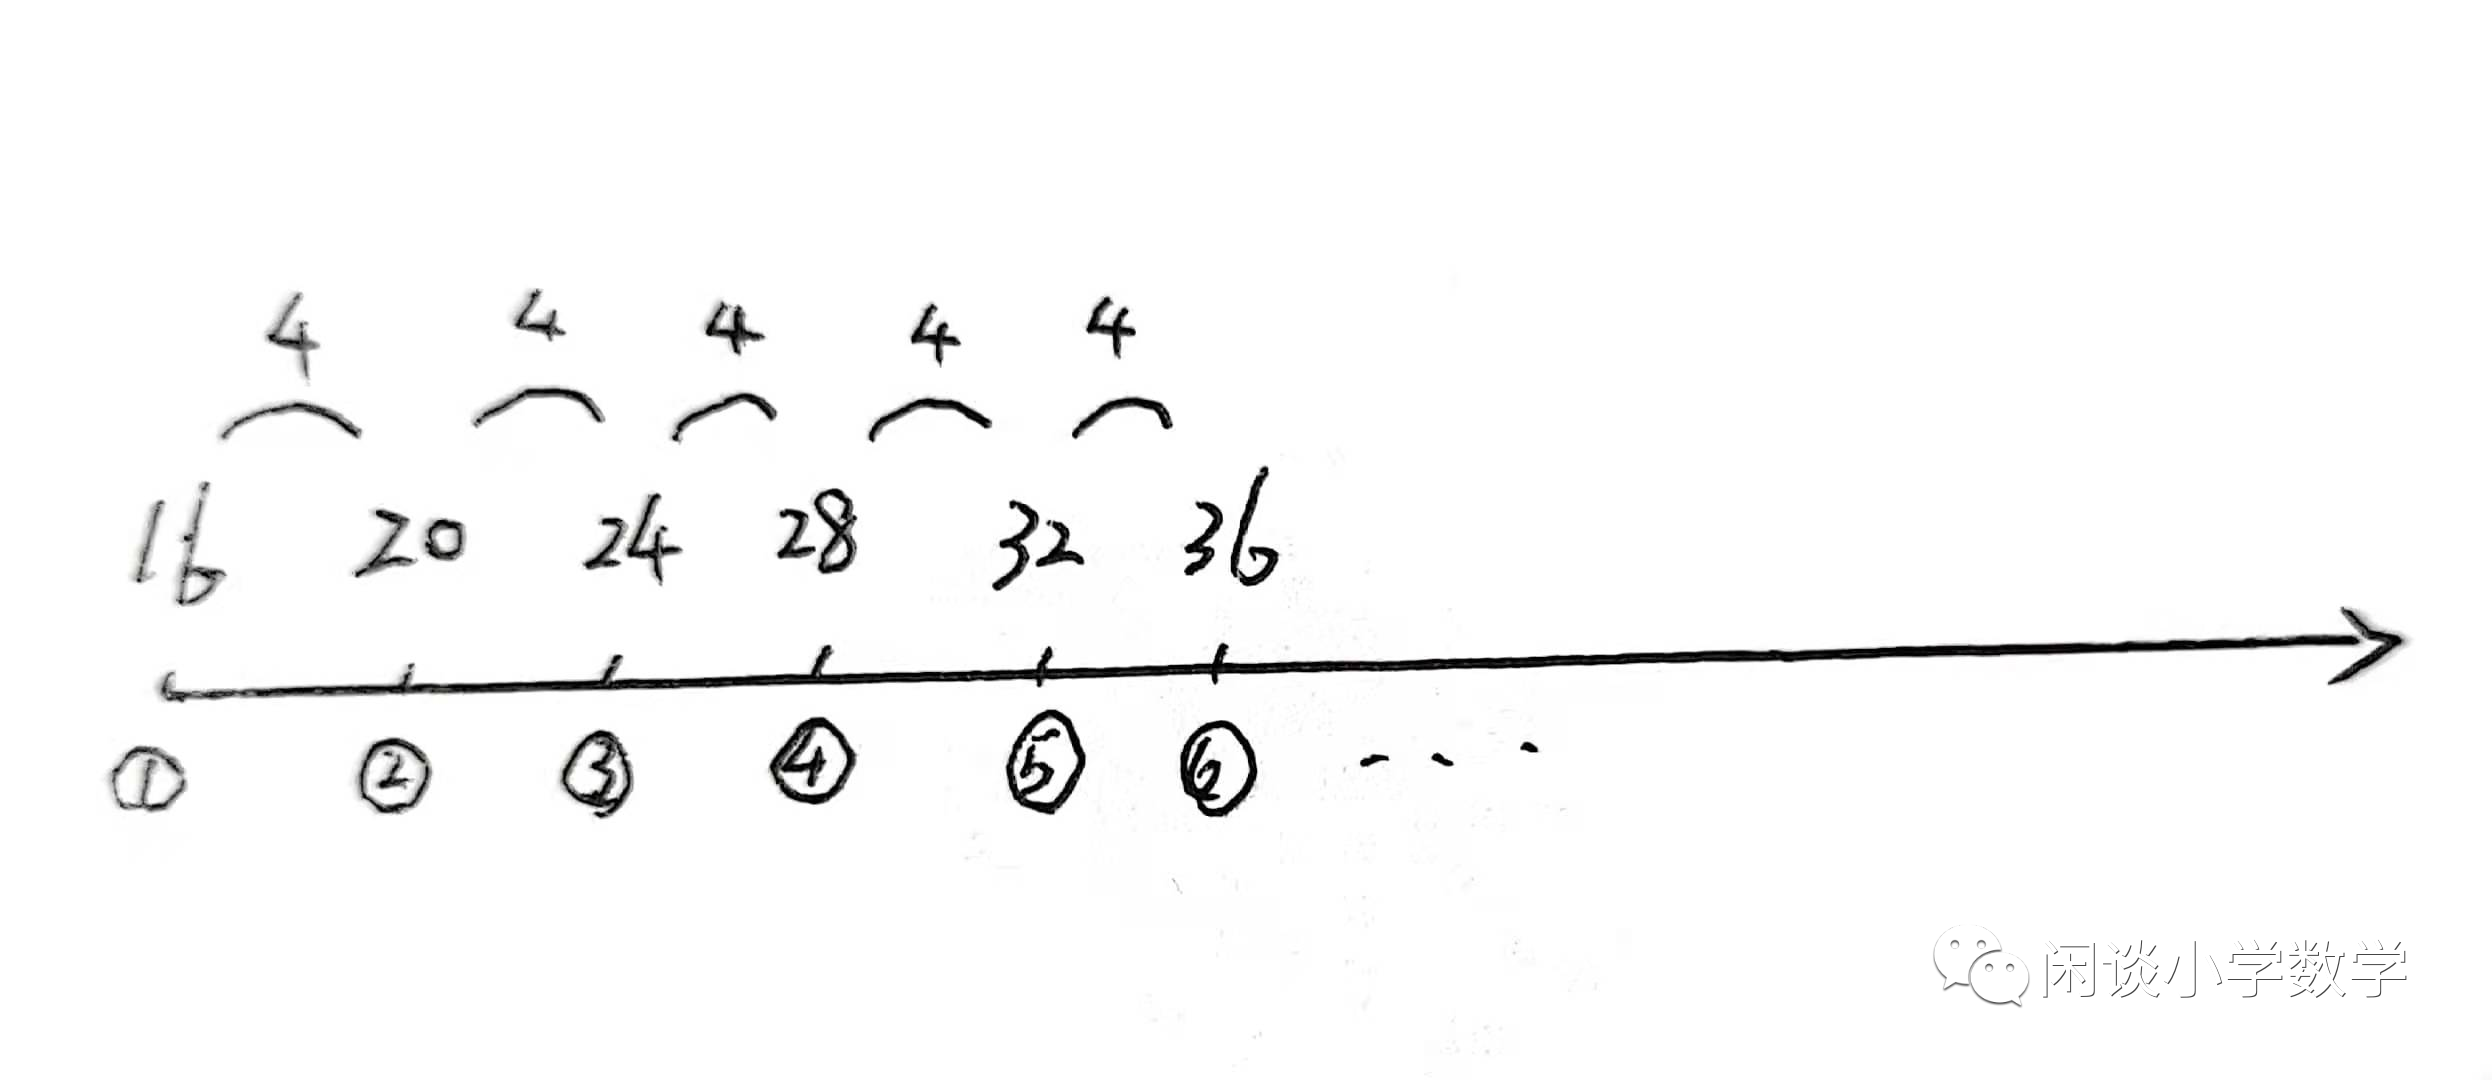 4 4 4 4 4
16 20 24 28 32 36
① ② ③ ④ ⑤ ⑥ ...
闲谈小学数学